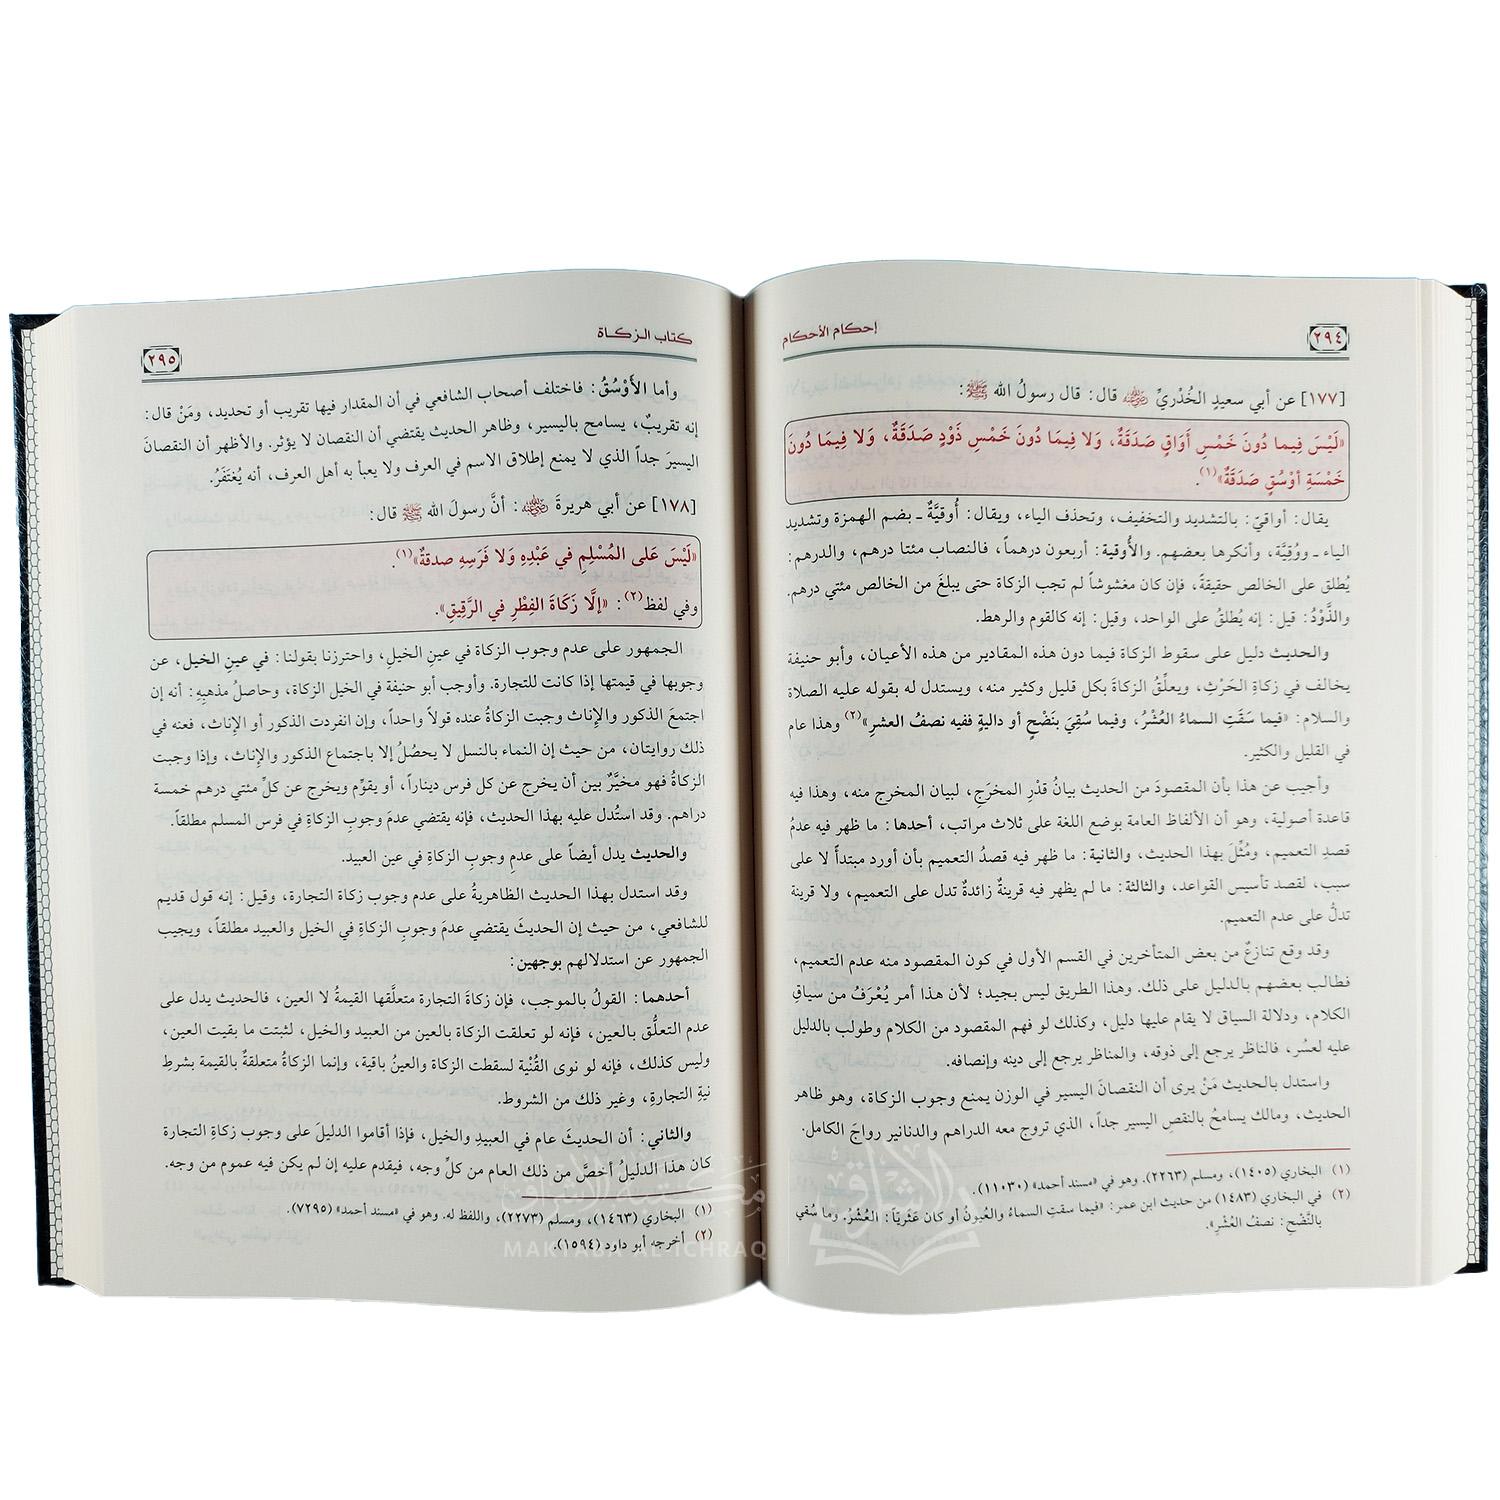 ٢٩٤
إحكام الأحكام
[١٧٧] عن أبي سعيدٍ الخُدْريِّ ﵁ قال: قال رسولُ الله ﷺ:
«لَيْسَ فِيما دُونَ خَمْسِ أَوَاقٍ صَدَقَةٌ، وَلا فِيمَا دُونَ خَمْسِ ذَوْدٍ صَدَقَةٌ، وَلا فِيمَا دُونَ
خَمْسَةِ أوْسُقٍ صَدَقَةٌ»(١).
يقال: أواقيّ: بالتشديد والتخفيف، وتحذف الياء، ويقال: أُوقيَّةٌ ـ بضم الهمزة وتشديد
الياء ـ ووُقِيَّة، وأنكرها بعضهم. والأُوقية: أربعون درهماً، فالنصاب مئتا درهم، والدرهم:
يُطلق على الخالص حقيقةً، فإن كان مغشوشاً لم تجب الزكاة حتى يبلغَ من الخالص مئتي درهم.
والذَّوْدُ: قيل: إنه يُطلقُ على الواحد، وقيل: إنه كالقوم والرهط.
والحديث دليل على سقوط الزكاة فيما دون هذه المقادير من هذه الأعيان، وأبو حنيفة
يخالف في زكاةِ الحَرْثِ، ويعلِّقُ الزكاةَ بكل قليل وكثير منه، ويستدل له بقوله عليه الصلاة
والسلام: «فيما سَقَتِ السماءُ العُشْرُ، وفيما سُقِيَ بنَضْحٍ أو داليةٍ ففيه نصفُ العشرِ»(٢) وهذا عام
في القليل والكثير.
وأجيب عن هذا بأن المقصودَ من الحديث بيانُ قدْرِ المخرَجِ، لبيان المخرج منه، وهذا فيه
قاعدة أصولية، وهو أن الألفاظ العامة بوضع اللغة على ثلاث مراتب، أحدها: ما ظهر فيه عدمُ
قصدِ التعميم، ومُثِّلَ بهذا الحديث، والثانية: ما ظهر فيه قصدُ التعميم بأن أورد مبتدأً لا على
سبب، لقصد تأسيس القواعد، والثالثة: ما لم يظهر فيه قرينةٌ زائدةٌ تدل على التعميم، ولا قرينة
تدلُّ على عدم التعميم.
وقد وقع تنازعٌ من بعض المتأخرين في القسم الأول في كون المقصود منه عدم التعميم،
فطالب بعضهم بالدليل على ذلك. وهذا الطريق ليس بجيد؛ لأن هذا أمر يُعْرَفُ من سياقِ
الكلام، ودلالة السياق لا يقام عليها دليل، وكذلك لو فهم المقصود من الكلام وطولب بالدليل
عليه لعسُر، فالناظر يرجع إلى ذوقه، والمناظر يرجع إلى دينه وإنصافه.
واستدل بالحديث مَنْ يرى أن النقصانَ اليسير في الوزن يمنع وجوب الزكاة، وهو ظاهر
الحديث، ومالك يسامحُ بالنقصِ اليسير جداً، الذي تروج معه الدراهم والدنانير رواجَ الكامل.
(١) البخاري (١٤٠٥)، ومسلم (٢٢٦٣). وهو في «مسند أحمد» (١١٠٣٠).
(٢) في البخاري (١٤٨٣) من حديث ابن عمر: «فيما سقتِ السماءُ والعُيونُ أو كان عَثَريّاً: العُشْرُ. وما سُقي
بالنَّضْح: نصفُ العُشْرِ».
كتاب الزكاة
٢٩٥
وأما الأَوْسُقُ: فاختلف أصحاب الشافعي في أن المقدار فيها تقريب أو تحديد، ومَنْ قال:
إنه تقريبٌ، يسامح باليسير، وظاهر الحديث يقتضي أن النقصان لا يؤثر. والأظهر أن النقصانَ
اليسيرَ جداً الذي لا يمنع إطلاق الاسم في العرف ولا يعبأ به أهل العرف، أنه يُغتَفَرُ.
[١٧٨] عن أبي هريرةَ ﵁: أنَّ رسولَ الله ﷺ قال:
«لَيْسَ عَلى المُسْلِمِ في عَبْدِهِ وَلا فَرَسِهِ صدقةٌ»(١).
وفي لفظ(٢): «إلَّا زَكَاةَ الفِطْرِ في الرَّقِيقِ».
الجمهور على عدم وجوب الزكاة في عينِ الخيلِ، واحترزنا بقولنا: في عينِ الخيل، عن
وجوبها في قيمتها إذا كانت للتجارة. وأوجب أبو حنيفة في الخيل الزكاة، وحاصلُ مذهبِهِ: أنه إن
اجتمعَ الذكور والإناث وجبت الزكاةُ عنده قولاً واحداً، وإن انفردت الذكور أو الإناث، فعنه في
ذلك روايتان، من حيث إن النماء بالنسل لا يحصُلُ إلا باجتماع الذكور والإناث، وإذا وجبت
الزكاةُ فهو مخيَّرٌ بين أن يخرج عن كل فرس ديناراً، أو يقوِّم ويخرج عن كلِّ مئتي درهم خمسة
دراهم. وقد استُدل عليه بهذا الحديث، فإنه يقتضي عدمَ وجوبِ الزكاةِ في فرس المسلم مطلقاً.
والحديث يدل أيضاً على عدمِ وجوبِ الزكاةِ في عين العبيد.
وقد استدل بهذا الحديث الظاهريةُ على عدم وجوب زكاة التجارة، وقيل: إنه قول قديم
للشافعي، من حيث إن الحديثَ يقتضي عدمَ وجوبِ الزكاةِ في الخيل والعبيد مطلقاً، ويجيب
الجمهور عن استدلالهم بوجهين:
أحدهما: القولُ بالموجب، فإن زكاةَ التجارة متعلَّقها القيمةُ لا العين، فالحديث يدل على
عدم التعلُّق بالعين، فإنه لو تعلقت الزكاة بالعين من العبيد والخيل، لثبتت ما بقيت العين،
وليس كذلك، فإنه لو نوى القُنْية لسقطت الزكاة والعينُ باقية، وإنما الزكاةُ متعلقةٌ بالقيمة بشرطِ
نيةِ التجارةِ، وغير ذلك من الشروط.
والثاني: أن الحديثَ عام في العبيدِ والخيل، فإذا أقاموا الدليلَ على وجوب زكاةِ التجارة
كان هذا الدليلُ أخصَّ من ذلك العام من كلِّ وجه، فيقدم عليه إن لم يكن فيه عموم من وجه.
(١) البخاري (١٤٦٣)، ومسلم (٢٢٧٣)، واللفظ له. وهو في «مسند أحمد» (٧٢٩٥).
(٢) أخرجه أبو داود (١٥٩٤).
مكتبة الإشراق
MAKTABA AL-ICHRAQ
الإشراق